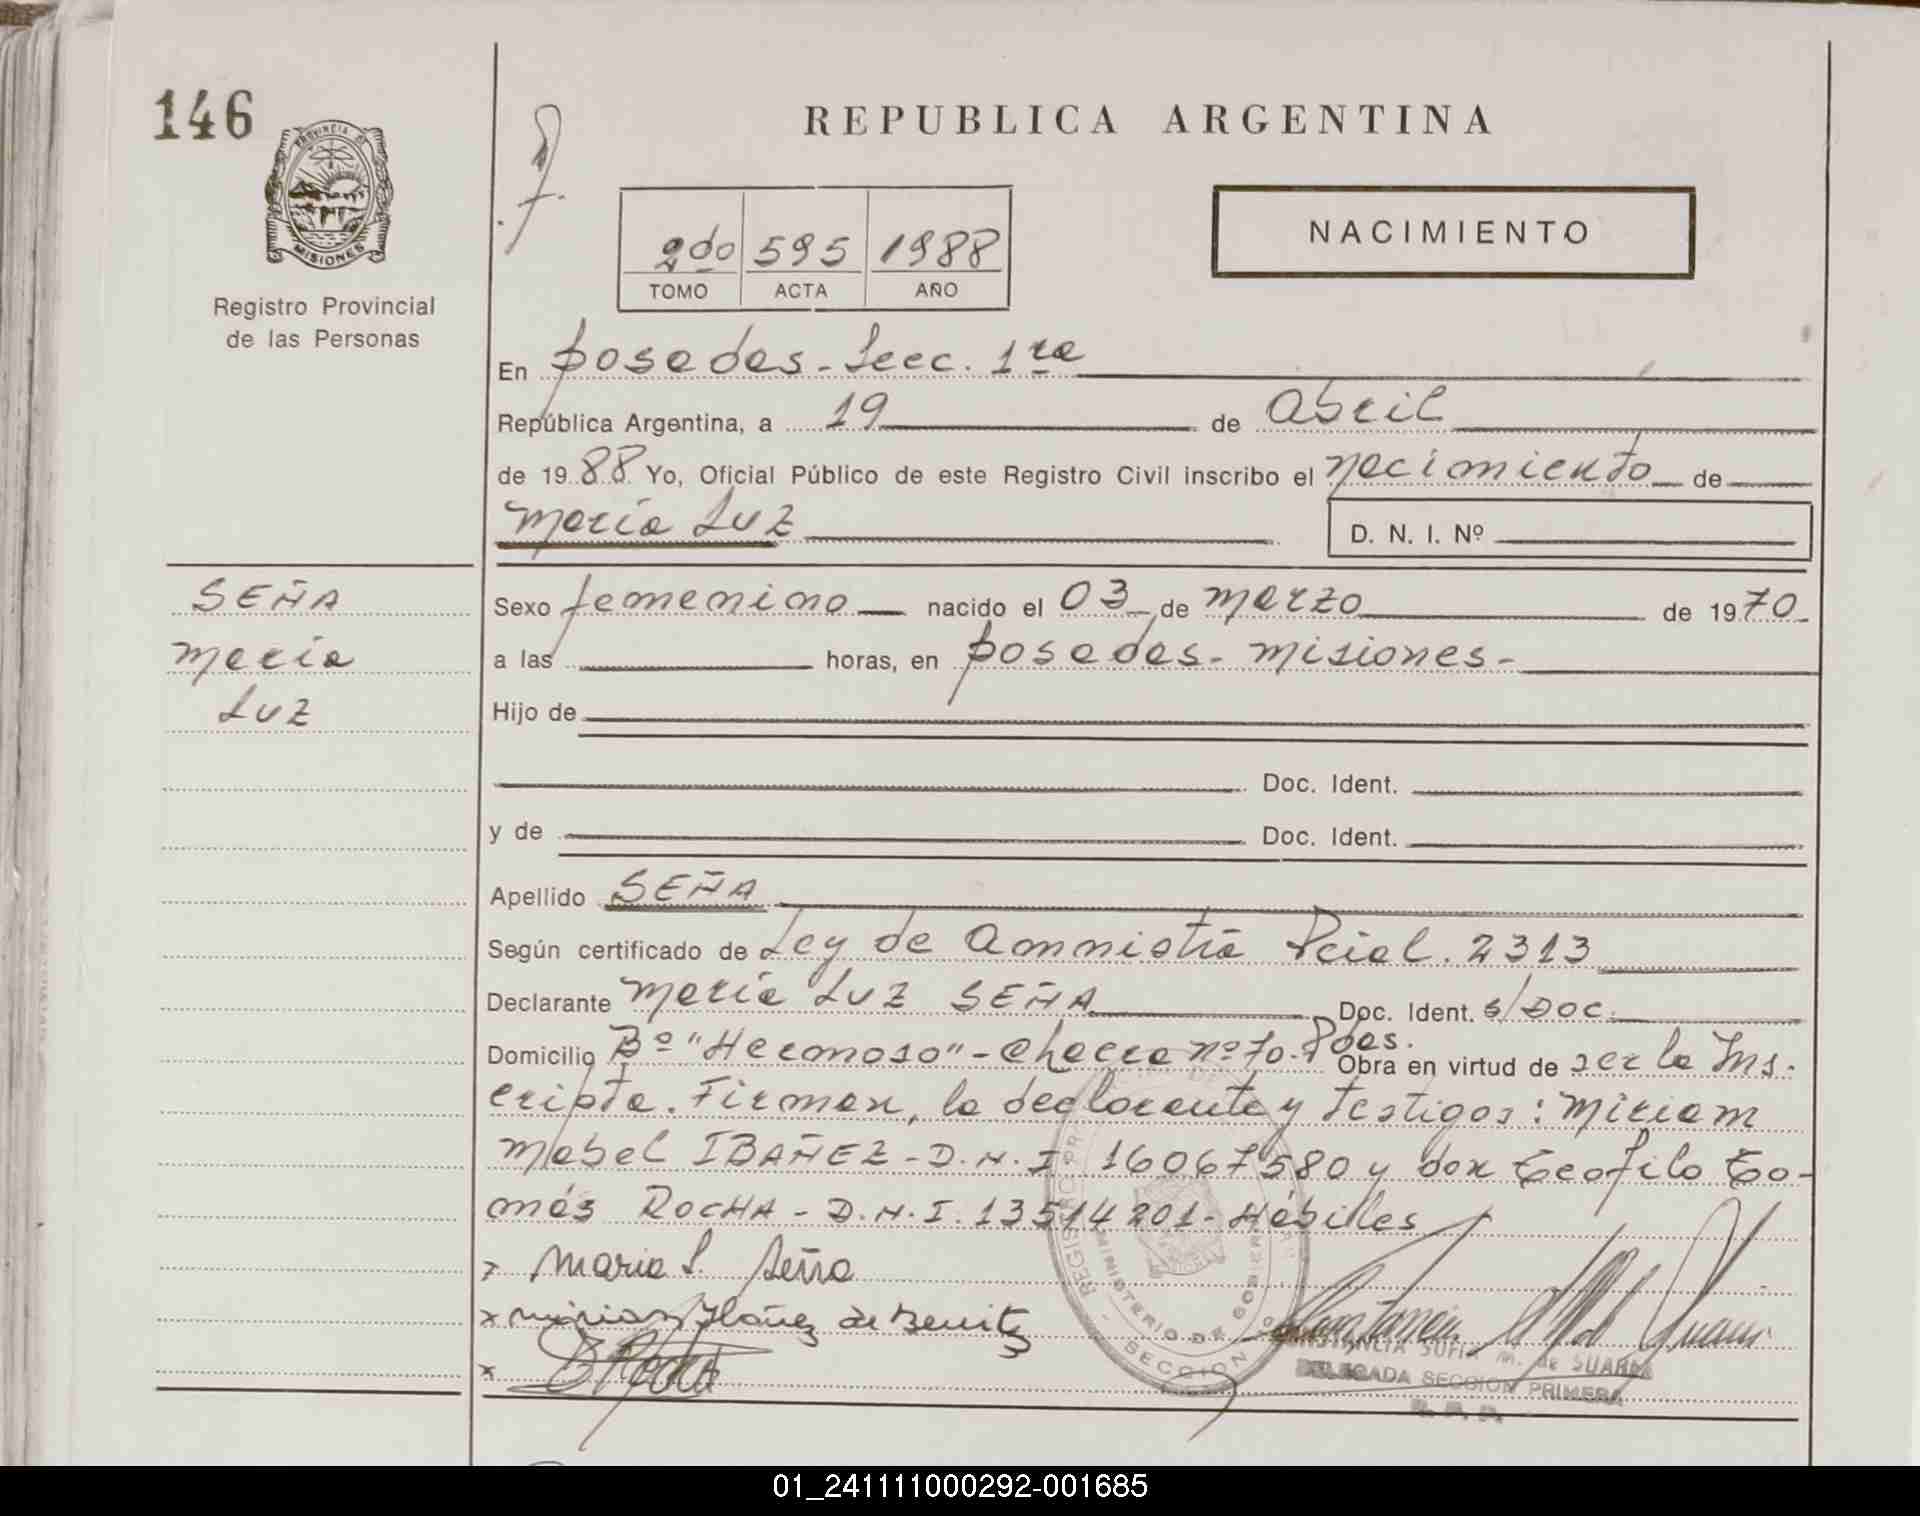 146
PROVINCIA DE
MISIONES
Registro Provincial
de las Personas
REPUBLICA ARGENTINA
2do 595 1988
TOMO ACTA AÑO
NACIMIENTO
En posadas - Secc. 1ra
República Argentina, a 19 de Abril
de 1988 Yo, Oficial Público de este Registro Civil inscribo el nacimiento de
maría Luz
D. N. I. Nº
SEÑA
maría
Luz
Sexo femenino nacido el 03 de marzo de 1970
a las horas, en posadas - misiones -
Hijo de
Doc. Ident.
y de Doc. Ident.
Apellido SEÑA
Según certificado de Ley de Amnistía Pcial. 2313
Declarante maría Luz SEÑA Doc. Ident. s/Doc.
Domicilio Bº "Hermoso" - chacra nº 70. Pdas. Obra en virtud de ser la Ins-
cripta. Firman, la declarante y testigos: Miriam
Mabel IBAÑEZ - D.N.I. 16067580 y don Teofilo To-
más ROCHA - D.N.I. 13514201 - Hábiles
x Maria L. Seña
x Miriam Ibañez de Benitez
x
MINISTERIO DE GOBIERNO
SECCION
CONSTANCIA SUFIA M. de SUAREZ
DELEGADA SECCION PRIMERA
R. P. P.
01_241111000292-001685